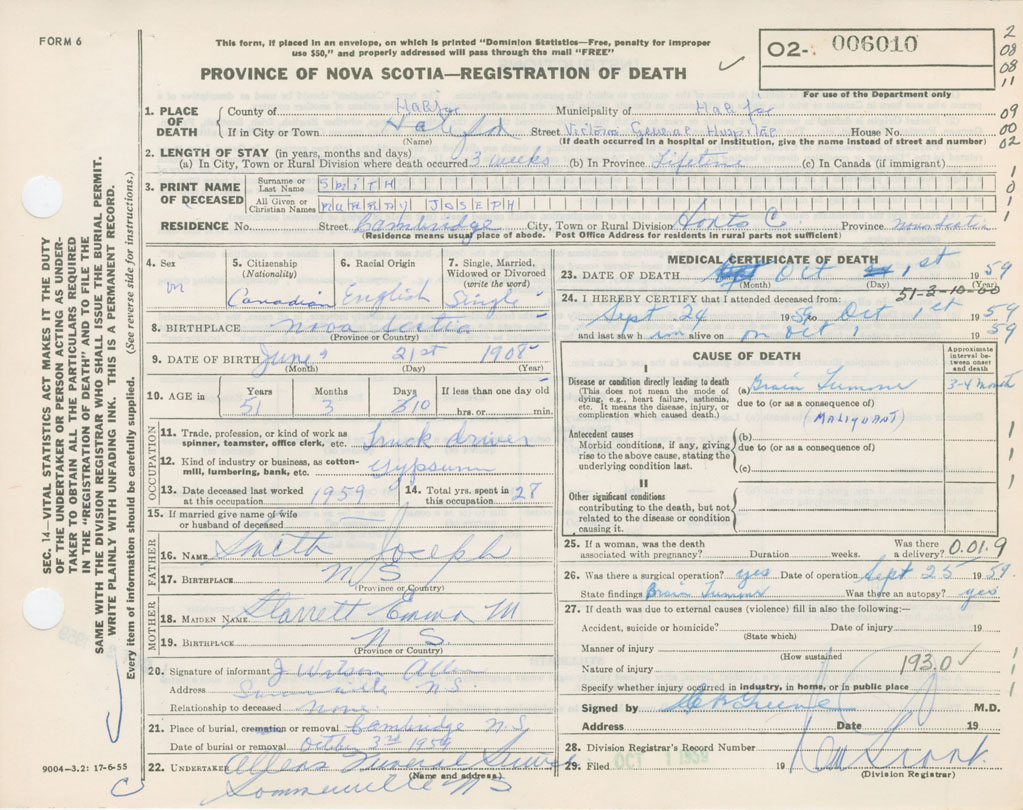 FORM 6
This form, if placed in an envelope, on which is printed "Dominion Statistics—Free, penalty for improper
use $50," and properly addressed will pass through the mail "FREE"
PROVINCE OF NOVA SCOTIA—REGISTRATION OF DEATH
02- 006010
For use of the Department only
2
08
08
11
09
00
02
1
0
1
1. PLACE OF DEATH County of Halifax Municipality of Halifax
If in City or Town Halifax Street Victoria General Hospital House No.
(Name) (If death occurred in a hospital or institution, give the name instead of street and number)
2. LENGTH OF STAY (in years, months and days)
(a) In City, Town or Rural Division where death occurred 3 weeks (b) In Province Lifetime (c) In Canada (if immigrant)
3. PRINT NAME OF DECEASED
Surname or Last Name SMITH
All Given or Christian Names MURRAY JOSEPH
RESIDENCE No. Street Cambridge City, Town or Rural Division Hants Co. Province Nova Scotia
(Residence means usual place of abode. Post Office Address for residents in rural parts not sufficient)
4. Sex m
5. Citizenship (Nationality) Canadian
6. Racial Origin English
7. Single, Married, Widowed or Divorced (write the word) Single
8. BIRTHPLACE Nova Scotia
(Province or Country)
9. DATE OF BIRTH June 21st 1908
(Month) (Day) (Year)
10. AGE in Years Months Days If less than one day old
51 3 10 hrs. or min.
OCCUPATION
11. Trade, profession, or kind of work as spinner, teamster, office clerk, etc. Truck driver
12. Kind of industry or business, as cotton-mill, lumbering, bank, etc. Gypsum
13. Date deceased last worked at this occupation 1959
14. Total yrs. spent in this occupation 27
15. If married give name of wife or husband of deceased —
FATHER
16. NAME Smith Joseph
17. BIRTHPLACE N S
(Province or Country)
MOTHER
18. MAIDEN NAME Starrett Emma M
19. BIRTHPLACE N S
(Province or Country)
20. Signature of informant J Watson Allen
Address N.S.
Relationship to deceased none
21. Place of burial, cremation or removal Cambridge N.S.
Date of burial or removal October 3rd 1959
22. UNDERTAKER Allens Funeral Service
(Name and address)
Sommerville NS
9004-3.2: 17-6-55
MEDICAL CERTIFICATE OF DEATH
23. DATE OF DEATH Oct 1st 1959
(Month) (Day) (Year)
51-3-10-00
24. I HEREBY CERTIFY that I attended deceased from:
Sept 24 1959 to Oct 1st 1959
and last saw him alive on on Oct 1 1959
CAUSE OF DEATH
Approximate interval between onset and death
I
Disease or condition directly leading to death
(This does not mean the mode of dying, e.g., heart failure, asthenia, etc. It means the disease, injury, or complication which caused death.)
(a) Brain Tumour 3-4 month
due to (or as a consequence of)
(MALIGNANT)
Antecedent causes
Morbid conditions, if any, giving rise to the above cause, stating the underlying condition last.
(b)
due to (or as a consequence of)
(c)
II
Other significant conditions
contributing to the death, but not related to the disease or condition causing it.
25. If a woman, was the death associated with pregnancy? Duration weeks. Was there a delivery? 0.01.9
26. Was there a surgical operation? yes Date of operation Sept 25 1959.
State findings Brain Tumour Was there an autopsy? yes
27. If death was due to external causes (violence) fill in also the following:—
Accident, suicide or homicide? Date of injury 19
(State which)
Manner of injury
(How sustained)
Nature of injury 193.0 ✓
Specify whether injury occurred in industry, in home, or in public place
Signed by M.D.
Address Date 19
28. Division Registrar's Record Number
29. Filed OCT 1 1959 19
(Division Registrar)
SEC. 14—VITAL STATISTICS ACT MAKES IT THE DUTY
OF THE UNDERTAKER OR PERSON ACTING AS UNDER-
TAKER TO OBTAIN ALL THE PARTICULARS REQUIRED
IN THE "REGISTRATION OF DEATH" AND TO FILE THE
SAME WITH THE DIVISION REGISTRAR WHO SHALL ISSUE THE BURIAL PERMIT.
WRITE PLAINLY WITH UNFADING INK. THIS IS A PERMANENT RECORD.
Every item of information should be carefully supplied. (See reverse side for instructions.)